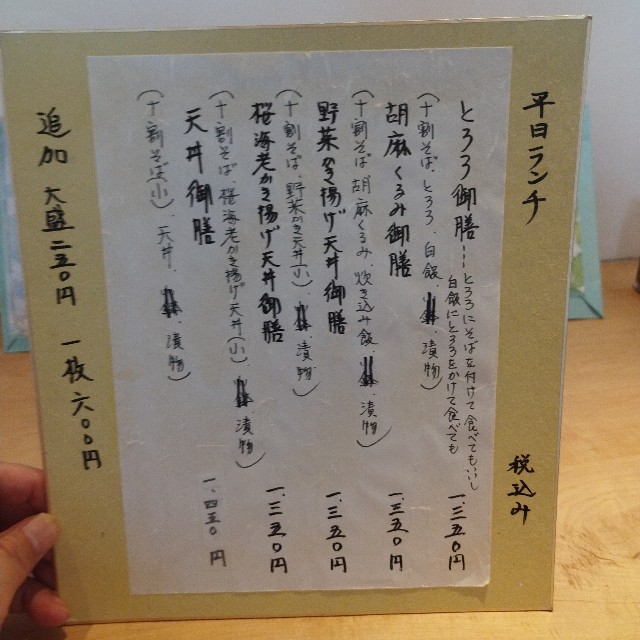 平日ランチ 税込み
とろろ御膳…とろろにそばを付けて食べても…し
白飯にとろろをかけて食べても
(十割そば、とろろ、白飯、漬物) 一、三五〇円
胡麻くるみ御膳 一、三五〇円
(十割そば 胡麻くるみ、炊き込み飯、漬物)
野菜かき揚げ天丼御膳 一、三五〇円
(十割そば、野菜かき天丼(小)、漬物)
桜海老かき揚げ天丼御膳 一、三五〇円
(十割そば 桜海老かき揚げ天丼(小)、漬物)
天丼御膳 一、四五〇円
(十割そば(小)、天丼、漬物)
追加 大盛二五〇円 一枚六〇〇円